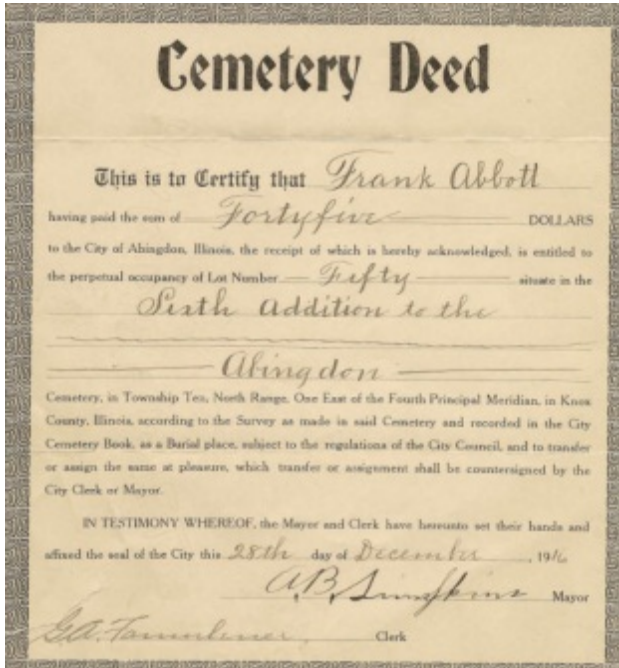 Cemetery Deed
This is to Certify that Frank Abbott
having paid the sum of Fortyfive DOLLARS
to the City of Abingdon, Illinois, the receipt of which is hereby acknowledged, is entitled to
the perpetual occupancy of Lot Number Fifty situate in the
Sixth Addition to the
Abingdon
Cemetery, in Township Ten, North Range, One East of the Fourth Principal Meridian, in Knox
County, Illinois, according to the Survey as made in said Cemetery and recorded in the City
Cemetery Book, as a Burial place, subject to the regulations of the City Council, and to transfer
or assign the same at pleasure, which transfer or assignment shall be countersigned by the
City Clerk or Mayor.
IN TESTIMONY WHEREOF, the Mayor and Clerk have hereunto set their hands and
affixed the seal of the City this 28th day of December, 1916
A.B. Mayor
G.A. Clerk